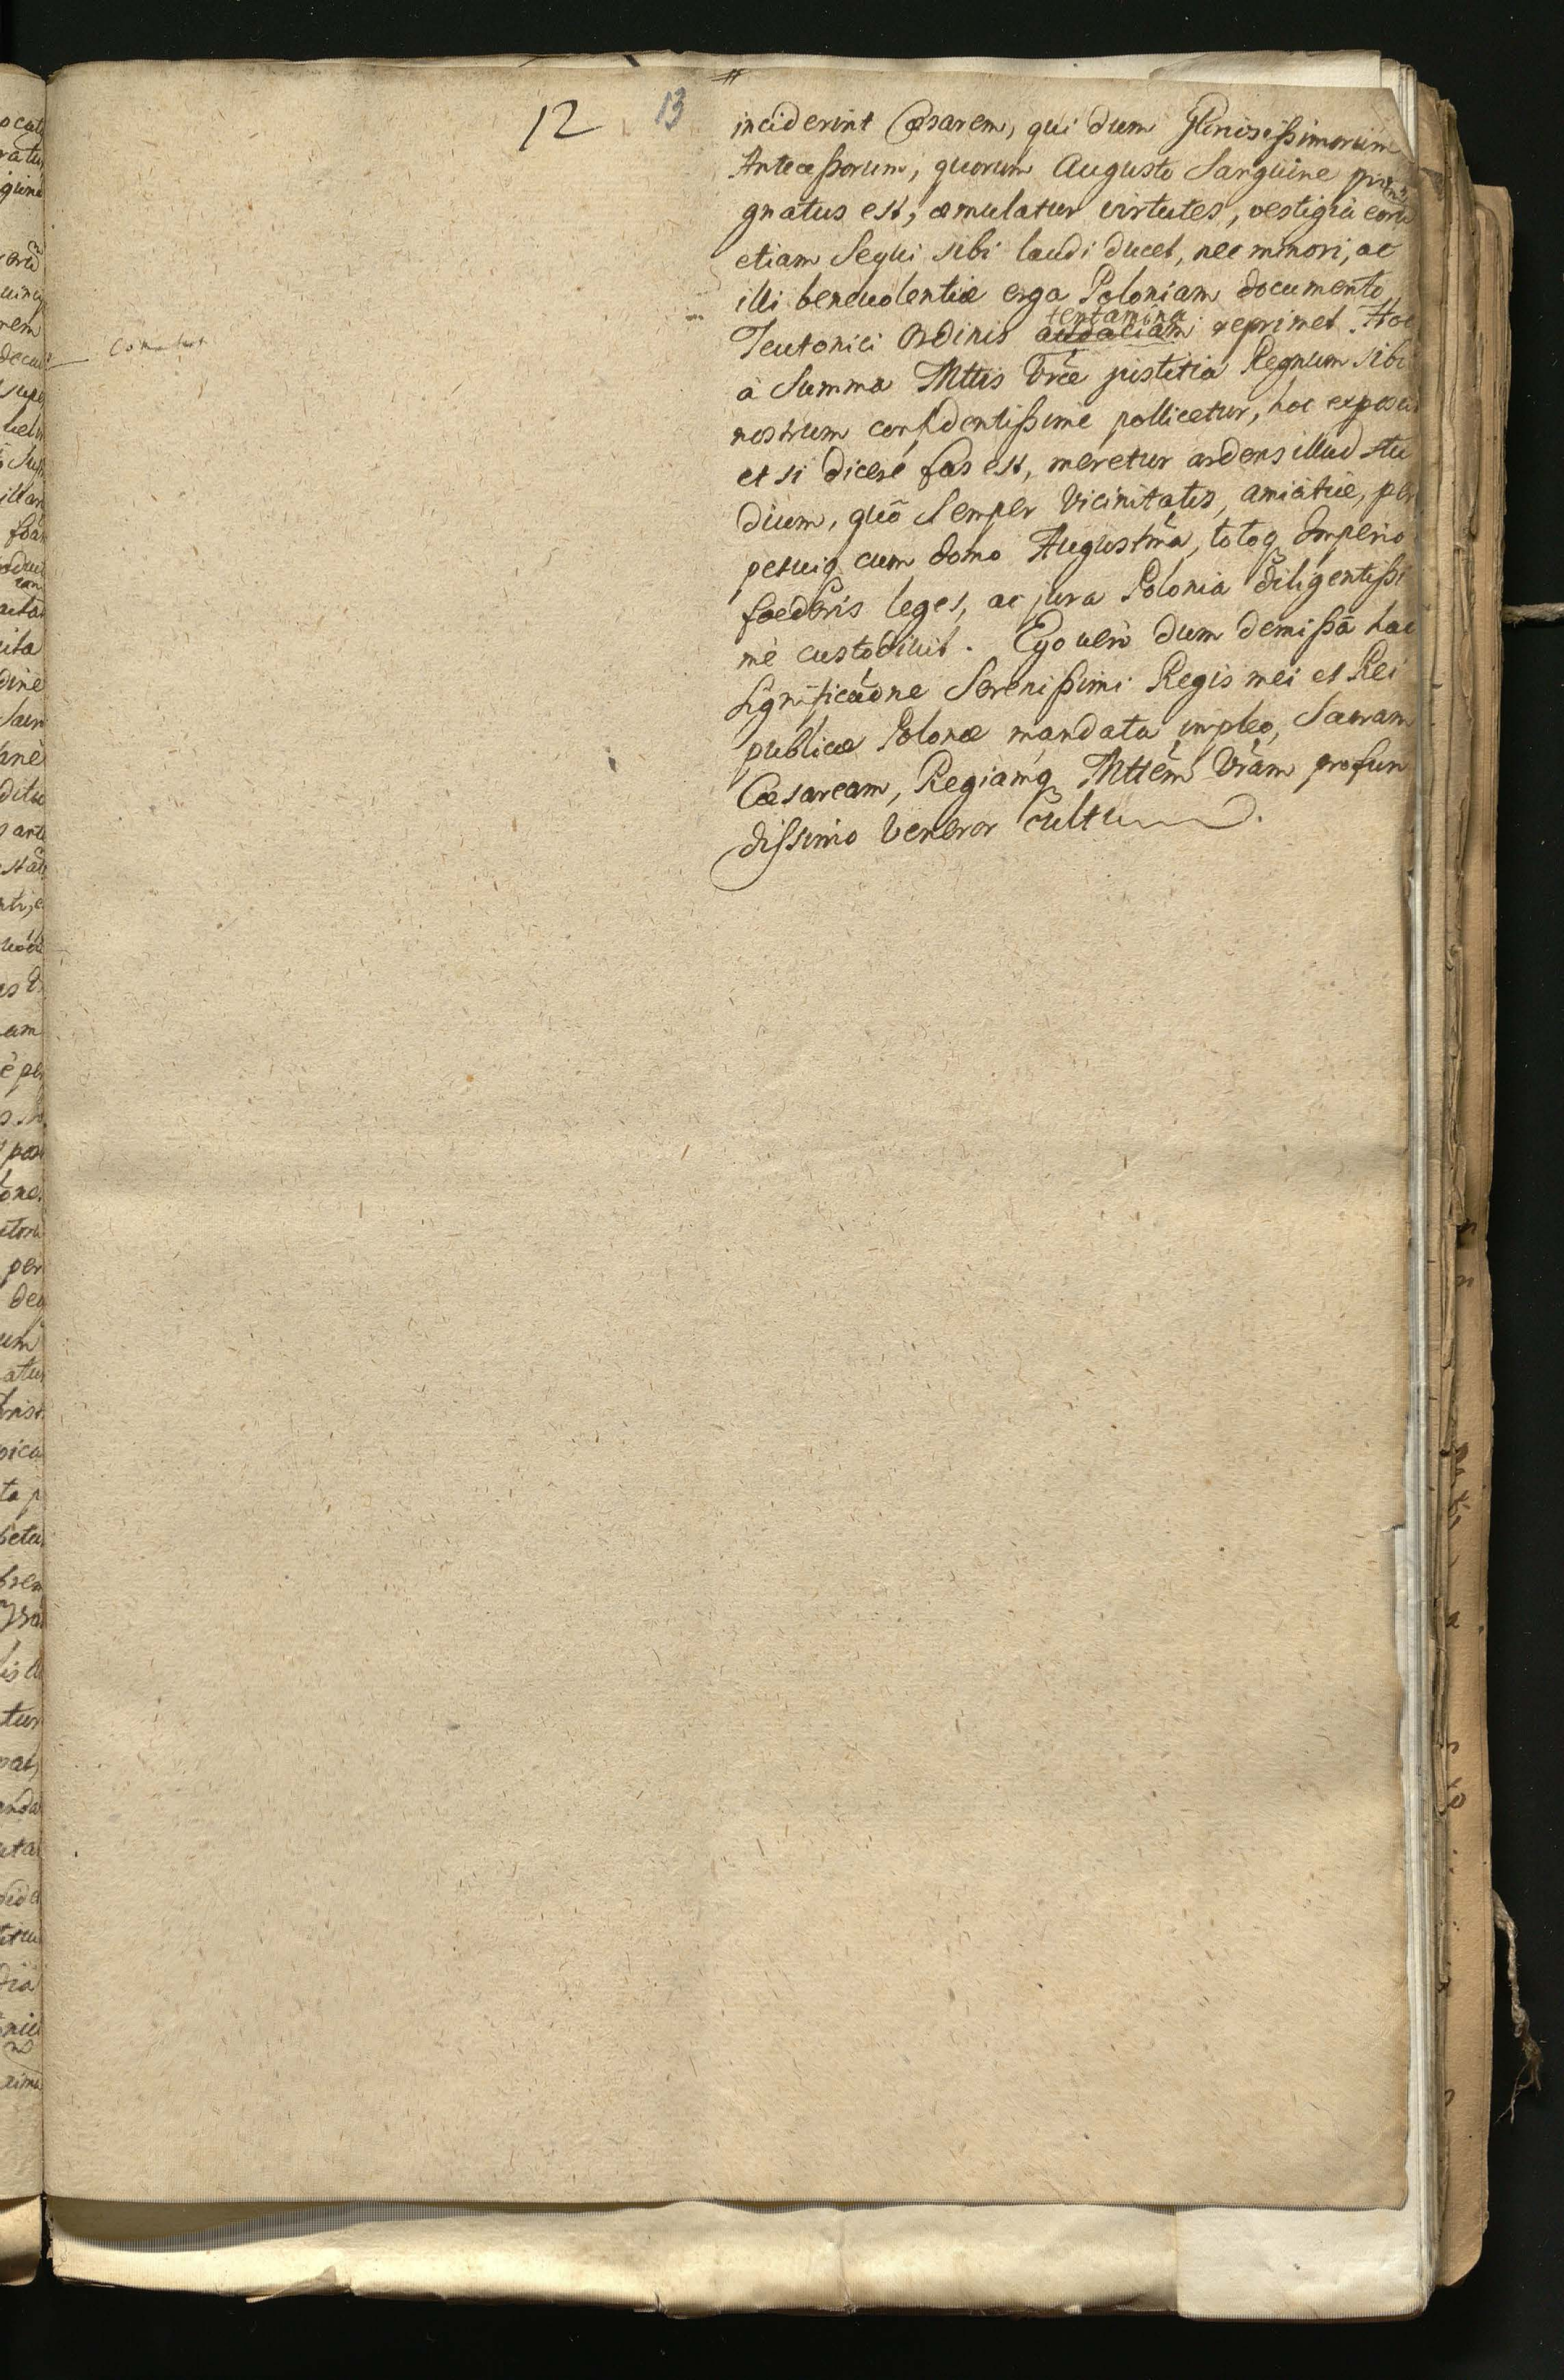 12 13
inciderint Cæsarem, qui dum Glriosissimorum
Antecessorum, quorum Augusto Sanguine pro
gnatus est, æmulatur virtutes, vestigia eorū
etiam Sequi sibi laudi ducet, nec minori, ac
illi beneuolentiæ erga Poloniam documento
tentamina
Teutonici Ordinis audaciam reprimet. Hoc
à Summa Mttis Vræ justitia Regnum sibi
nostrum confidentissimè pollicetur, hoc exposcit
et si dicere fas est, meretur ardens illud stu
dium, quō Semper Vicinitatis, amicitiæ, per
petuiq cum domo Augustmā, totoq Imperio
foederis leges, ac jura Polonia diligentissi
mè custodiuit. Ego uerò dum demissā hac
significāōne Serenissimi Regis mei et Rei
publicæ Polonæ mandata impleo, Sacram
Cæsaream, Regiamq Mttēm Vrām profun
dissimo veneror cultu.